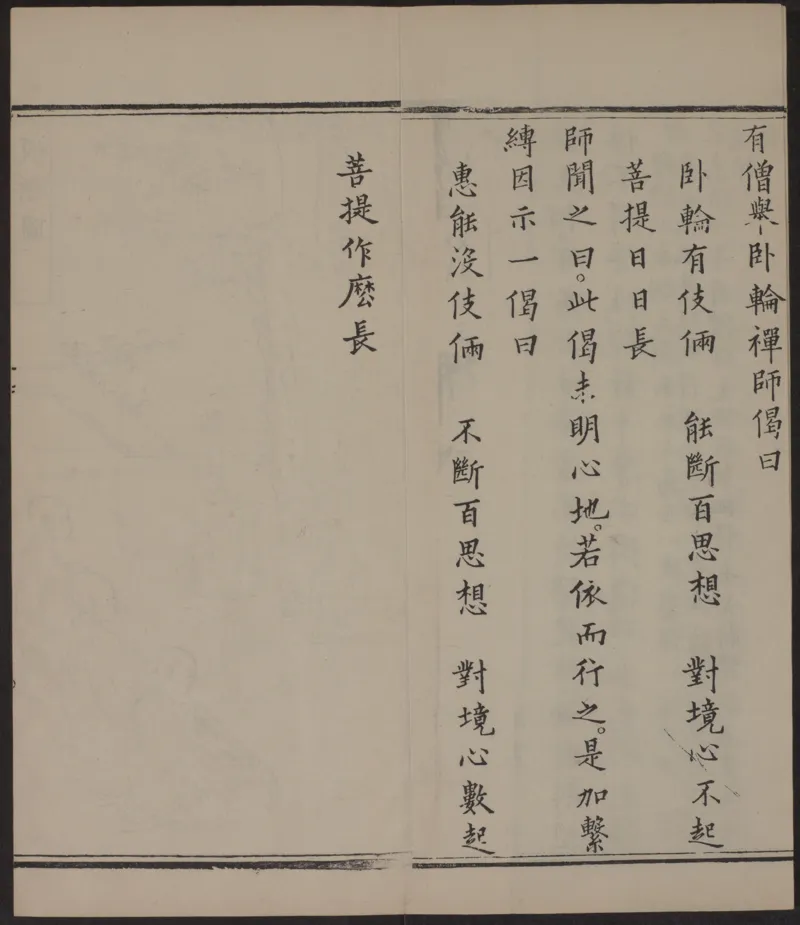 有僧舉卧輪禪師偈曰
卧輪有伎倆 能斷百思想 對境心不起
菩提日日長
師聞之曰。此偈未明心地。若依而行之。是加繫
縛因示一偈曰
惠能沒伎倆 不斷百思想 對境心數起
菩提作麽長